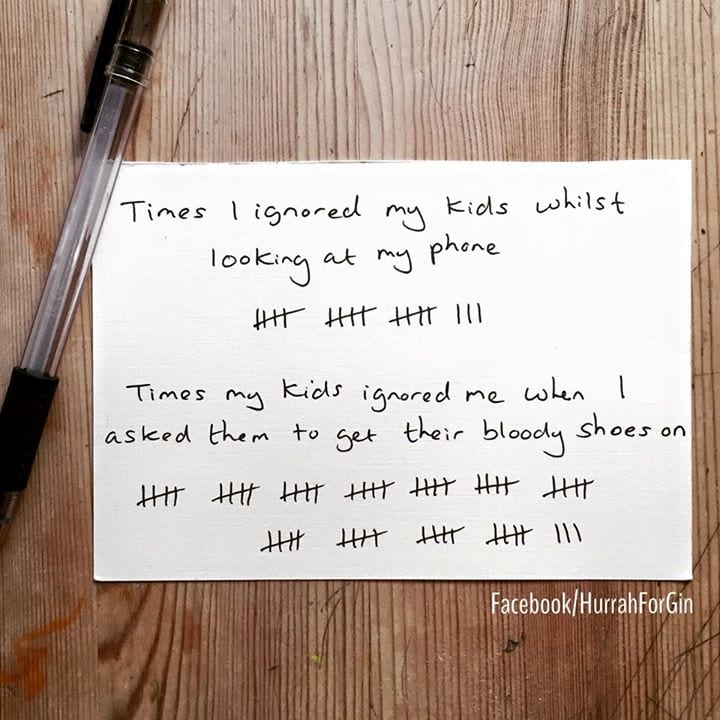 Times I ignored my kids whilst
looking at my phone
卌 卌 卌 |||
Times my kids ignored me when I
asked them to get their bloody shoes on
卌 卌 卌 卌 卌 卌 卌
卌 卌 卌 卌 |||
Facebook/HurrahForGin